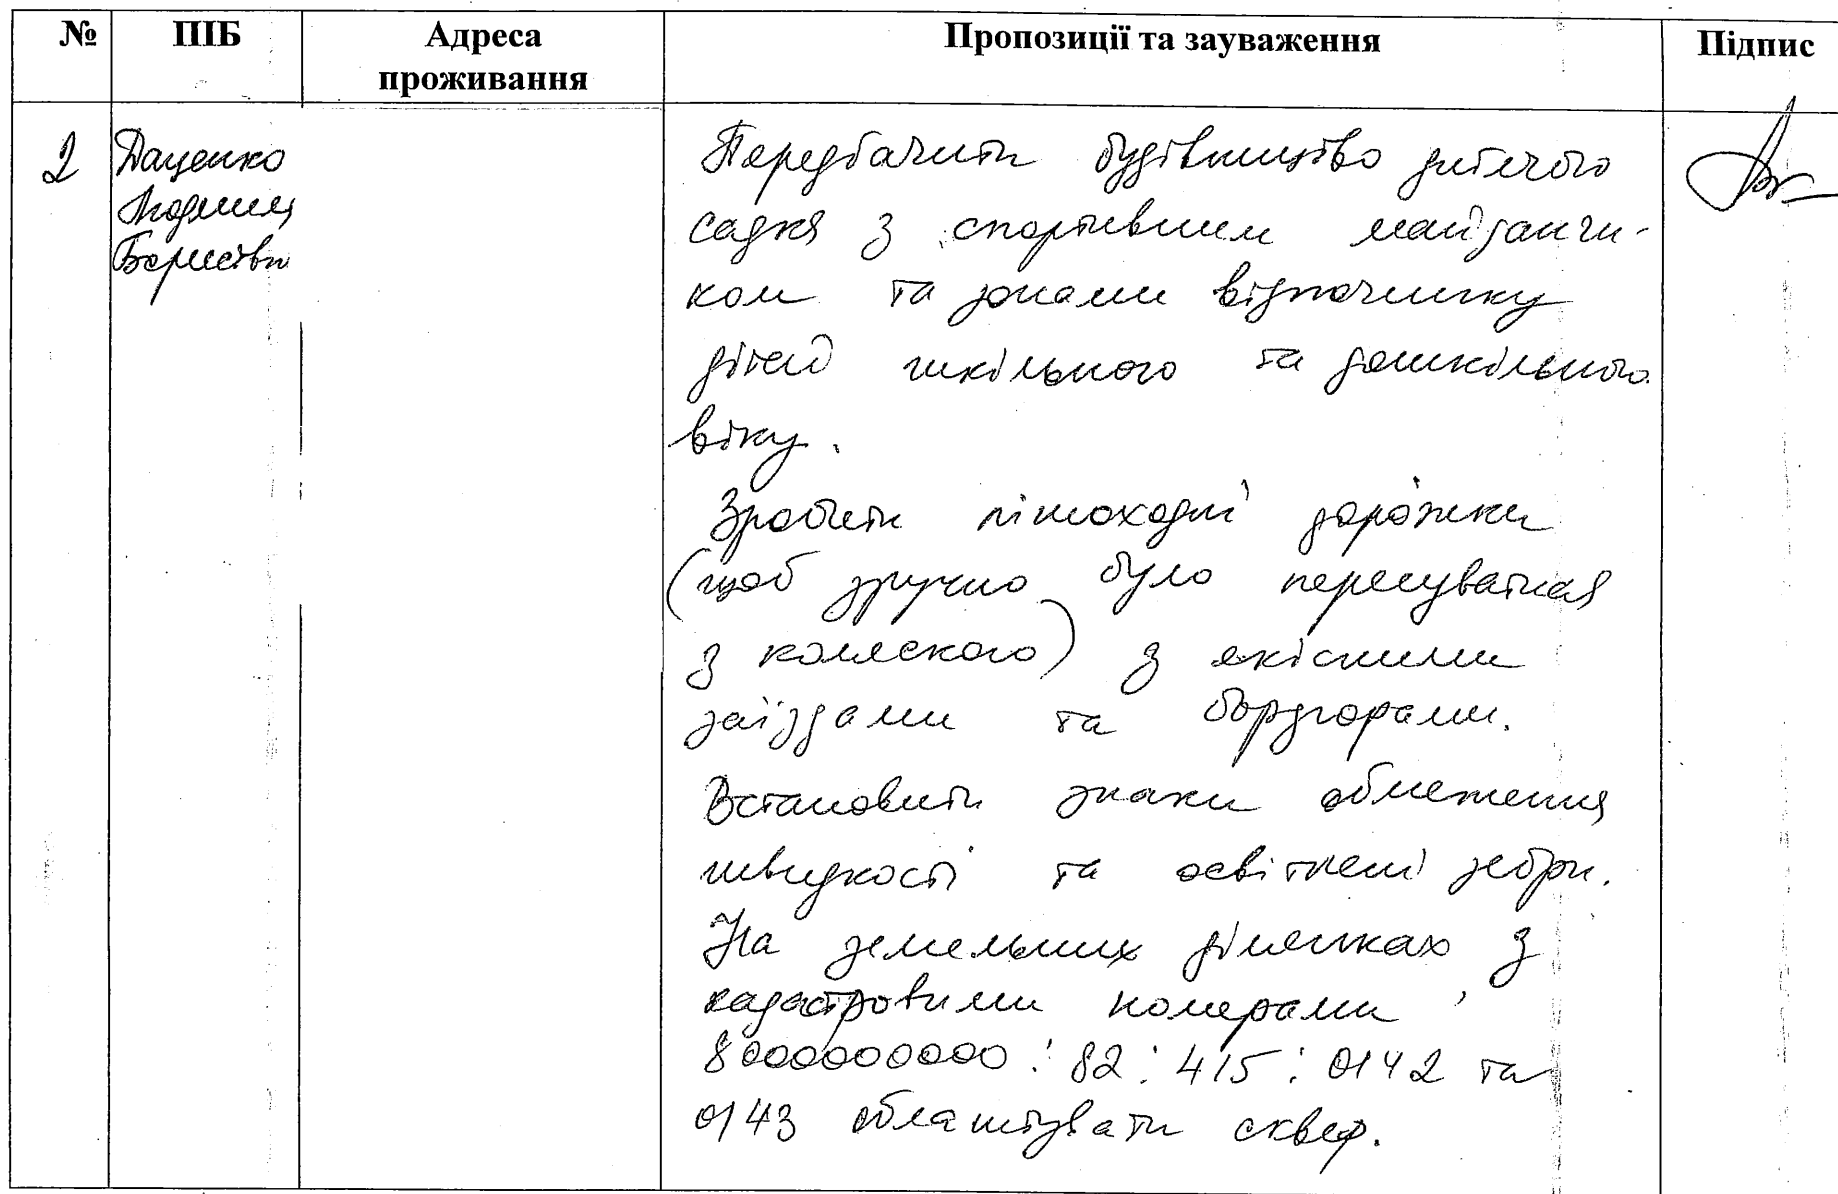 № ПІБ Адреса проживання Пропозиції та зауваження Підпис
2 Даценко
Людмила
Борисівн
Передбачити будівництво дитячого
садка з спортивним майданчи-
ком та зонами відпочинку
дітей шкільного та дошкільного
віку.
Зробити пішохідні доріжки
(щоб зручно було пересуватися
з коляскою) з якісними
заїздами та бордюрами.
Встановити знаки обмеження
швидкості та освітлені зебри.
На земельних ділянках з
кадастровими номерами
8000000000:82:415:0142 та
0143 облаштувати сквер.